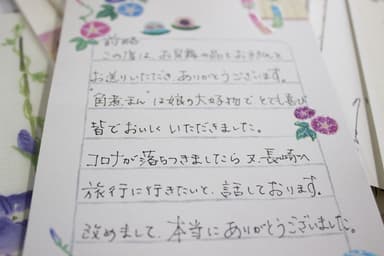 前略
この度は、お見舞の品をお子さんと
お送りいただき、ありがとうございます。
"角煮まん"は娘の大好物でとても喜び
皆でおいしくいただきました。
コロナが落ちつきましたら又、長崎へ
旅行に行きたいと、話しております。
改めまして、本当にありがとうございました。